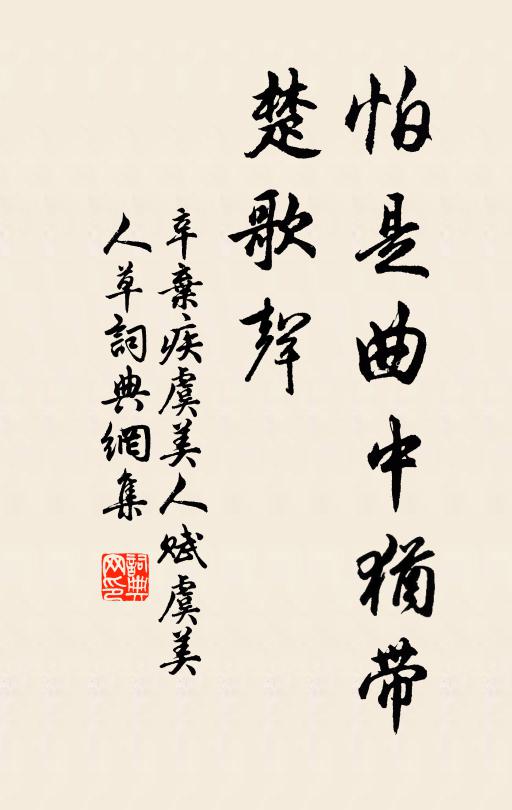 怕是曲中猶帶
楚歌聲
辛棄疾虞美人賦虞美
人草詞典網集
詞典
网印